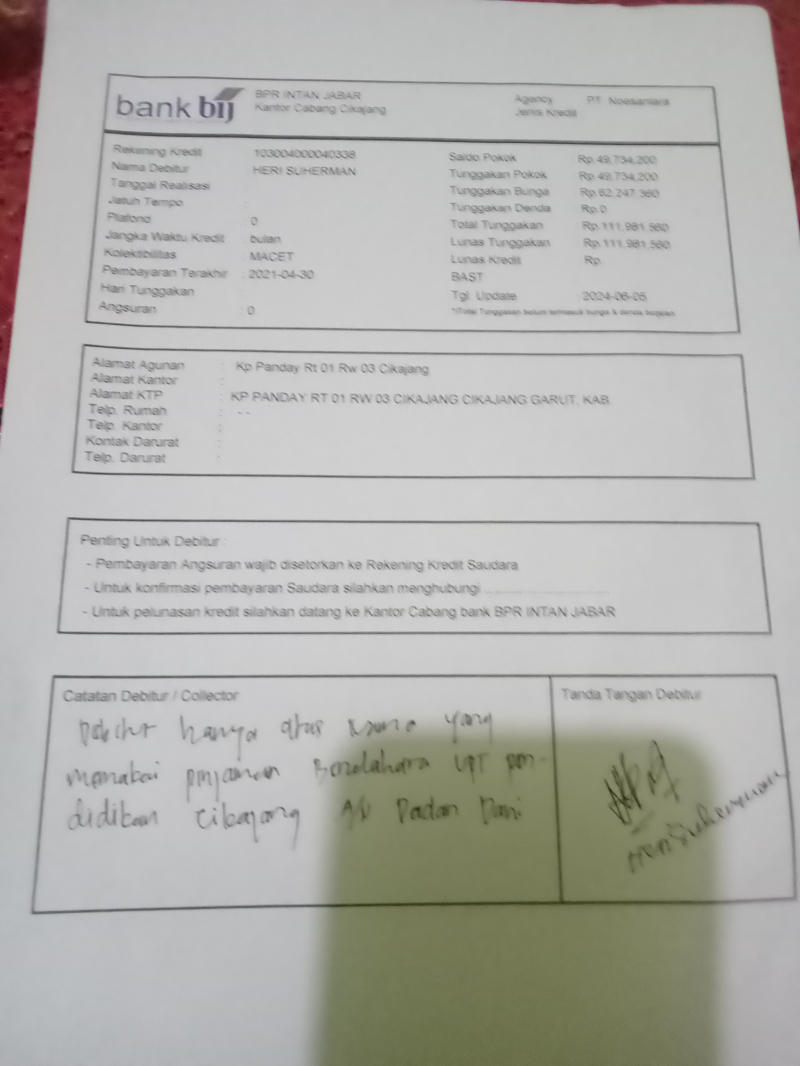 bank bij
BPR INTAN JABAR
Kantor Cabang Cikajang
Agency PT Noesantara
Jenis Kredit
Rekening Kredit 103004000040338
Nama Debitur HERI SUHERMAN
Tanggal Realisasi
Jatuh Tempo :
Plafond : 0
Jangka Waktu Kredit : bulan
Kolektibilitas : MACET
Pembayaran Terakhir : 2021-04-30
Hari Tunggakan
Angsuran : 0
Saldo Pokok Rp.49,734,200
Tunggakan Pokok Rp.49,734,200
Tunggakan Bunga Rp.62,247,360
Tunggakan Denda Rp.0
Total Tunggakan Rp.111,981,560
Lunas Tunggakan Rp.111,981,560
Lunas Kredit Rp.
BAST
Tgl. Update 2024-06-05
*)Total Tunggakan belum termasuk bunga & denda berjalan
Alamat Agunan : Kp Panday Rt 01 Rw 03 Cikajang
Alamat Kantor :
Alamat KTP : KP PANDAY RT 01 RW 03 CIKAJANG CIKAJANG GARUT, KAB.
Telp. Rumah : - -
Telp. Kantor :
Kontak Darurat :
Telp. Darurat :
Penting Untuk Debitur :
- Pembayaran Angsuran wajib disetorkan ke Rekening Kredit Saudara
- Untuk konfirmasi pembayaran Saudara silahkan menghubungi ..............................
- Untuk pelunasan kredit silahkan datang ke Kantor Cabang bank BPR INTAN JABAR
Catatan Debitur / Collector
hanya atas nama yang
memakai pinjaman Bendahara UPT pen-
didikan Cikajang A/N Dadan Dani
Tanda Tangan Debitur
Heri Suherman